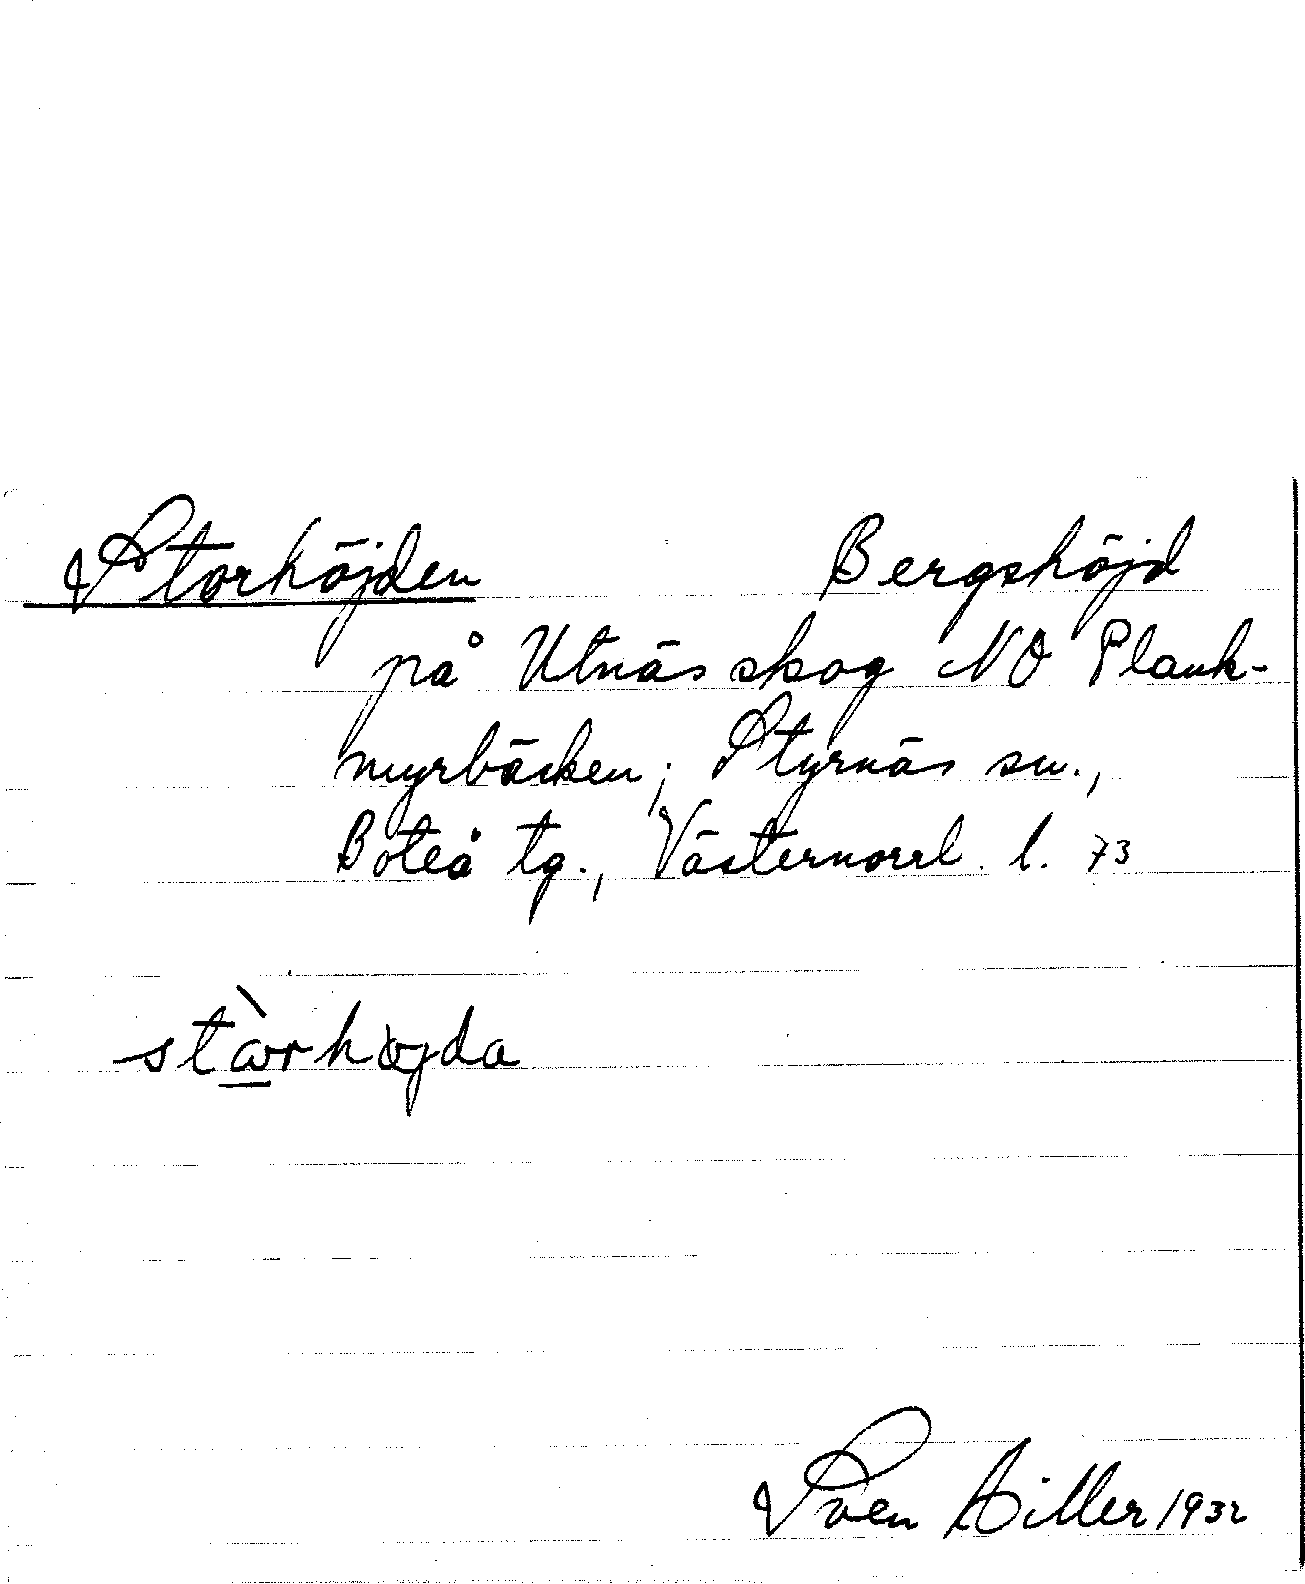 Storhöjden Bergshöjd
på Utnäs skog NO Plank-
myrbäcken; Styrnäs sn.,
Boteå tg., Västernorrl. l. 73
Sven Hiller 1932